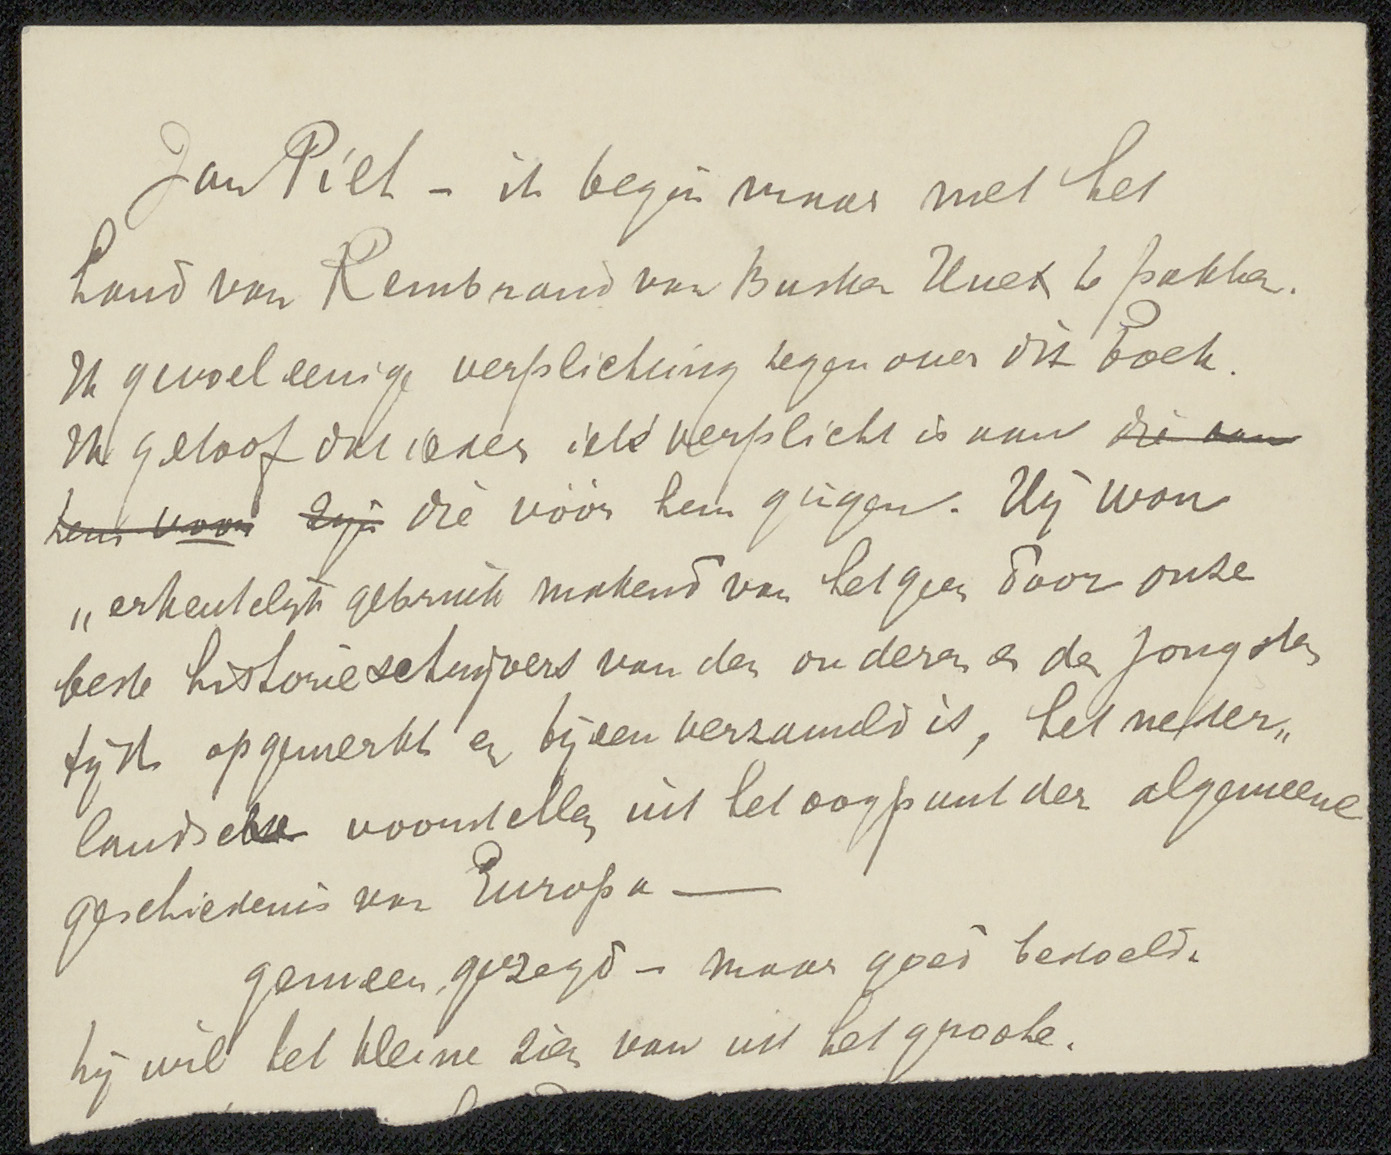 Jan Piet - ik begin maar met het
Land van Rembrand van Busken Huet te pakken.
Ik gevoel eenige verplichting tegenover dit boek.
Ik geloof dat ieder iets verplicht is aan die aan
hem voor zijn die vóór hem gingen. Hij won
„erkentelijk gebruik makend van hetgeen door onze
beste historieschrijvers van den ouderen en den jongsten
tijds opgemerkt en bijeenverzameld is, het neder„
landsche voorstellen uit het oogpunt der algemeene
geschiedenis van Europa —
gemeen gezegd - maar goed bedoeld.
hij wil het kleine zien van uit het groote.